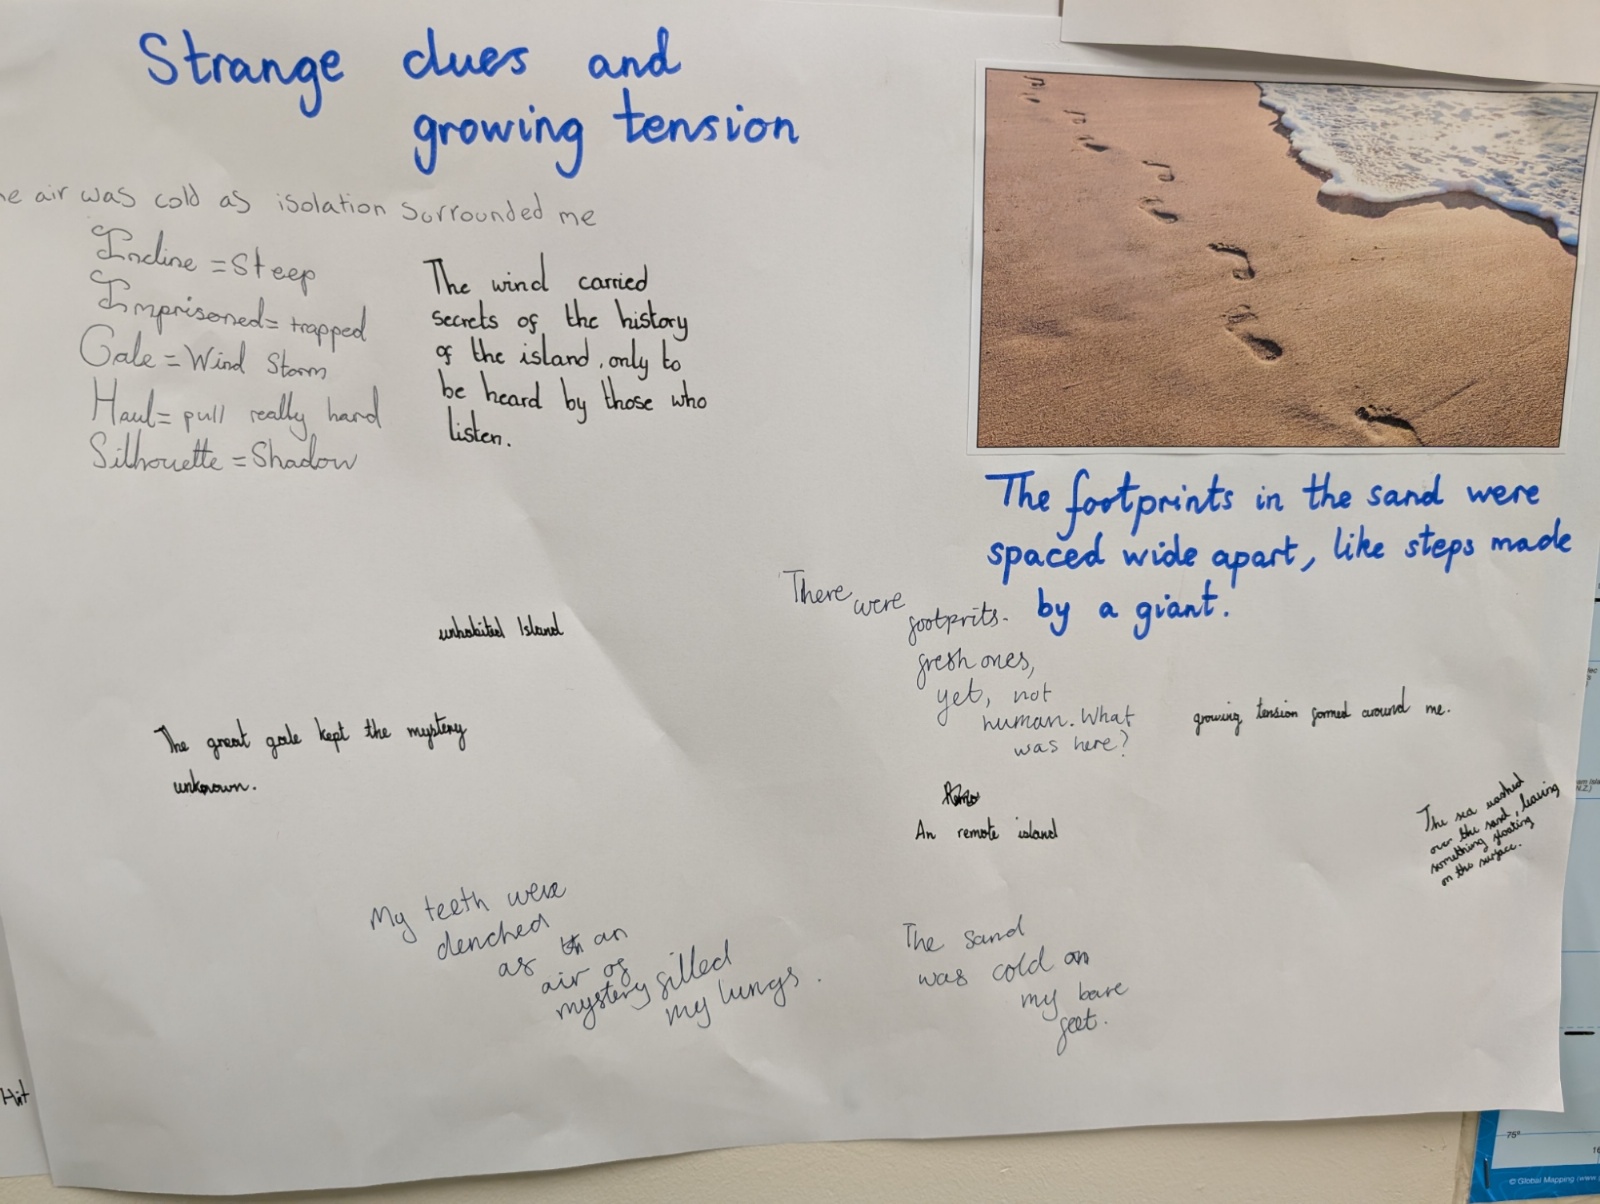 Strange clues and
growing tension
he air was cold as isolation surrounded me
Incline = Steep
Imprisoned = trapped
Gale = Wind Storm
Haul = pull really hard
Silhouette = Shadow
The wind carried
secrets of the history
of the island, only to
be heard by those who
listen.
The footprints in the sand were
spaced wide apart, like steps made
by a giant.
There were
footprits.
fresh ones,
yet, not
human. What
was here?
unhabited Island
growing tension formed around me.
The great gale kept the mystery
unknown.
An remote island
The sea washed
over the sand, leaving
something floating
on the surface.
My teeth were
clenched
as an
air of
mystery filled
my lungs.
The sand
was cold on
my bare
feet.
Hit
75°
© Global Mapping (www